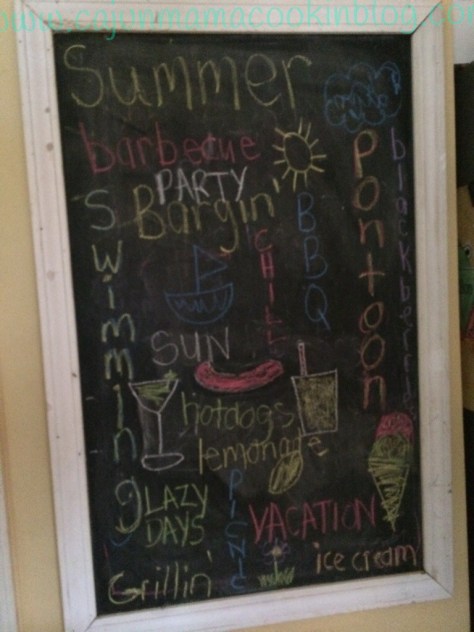 www.cajunmamacookinblog.com
Summer
barbecue
PARTY
Bargin'
Swimming
CHILL
BBQ
Pontoon
SUN
hotdogs
lemonade
LAZY
DAYS
PICNIC
VACATION
ice cream
Grillin'